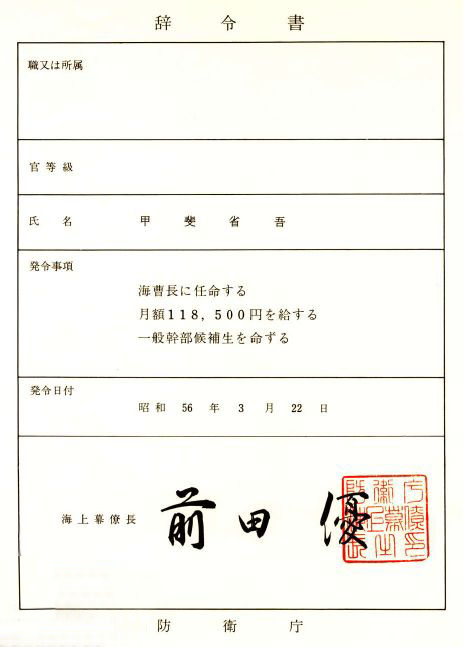 辞令書
職又は所属
官等級
氏名 甲斐省吾
発令事項
海曹長に任命する
月額118,500円を給する
一般幹部候補生を命ずる
発令日付
昭和 56 年 3 月 22 日
海上幕僚長 前田 優
防衛庁